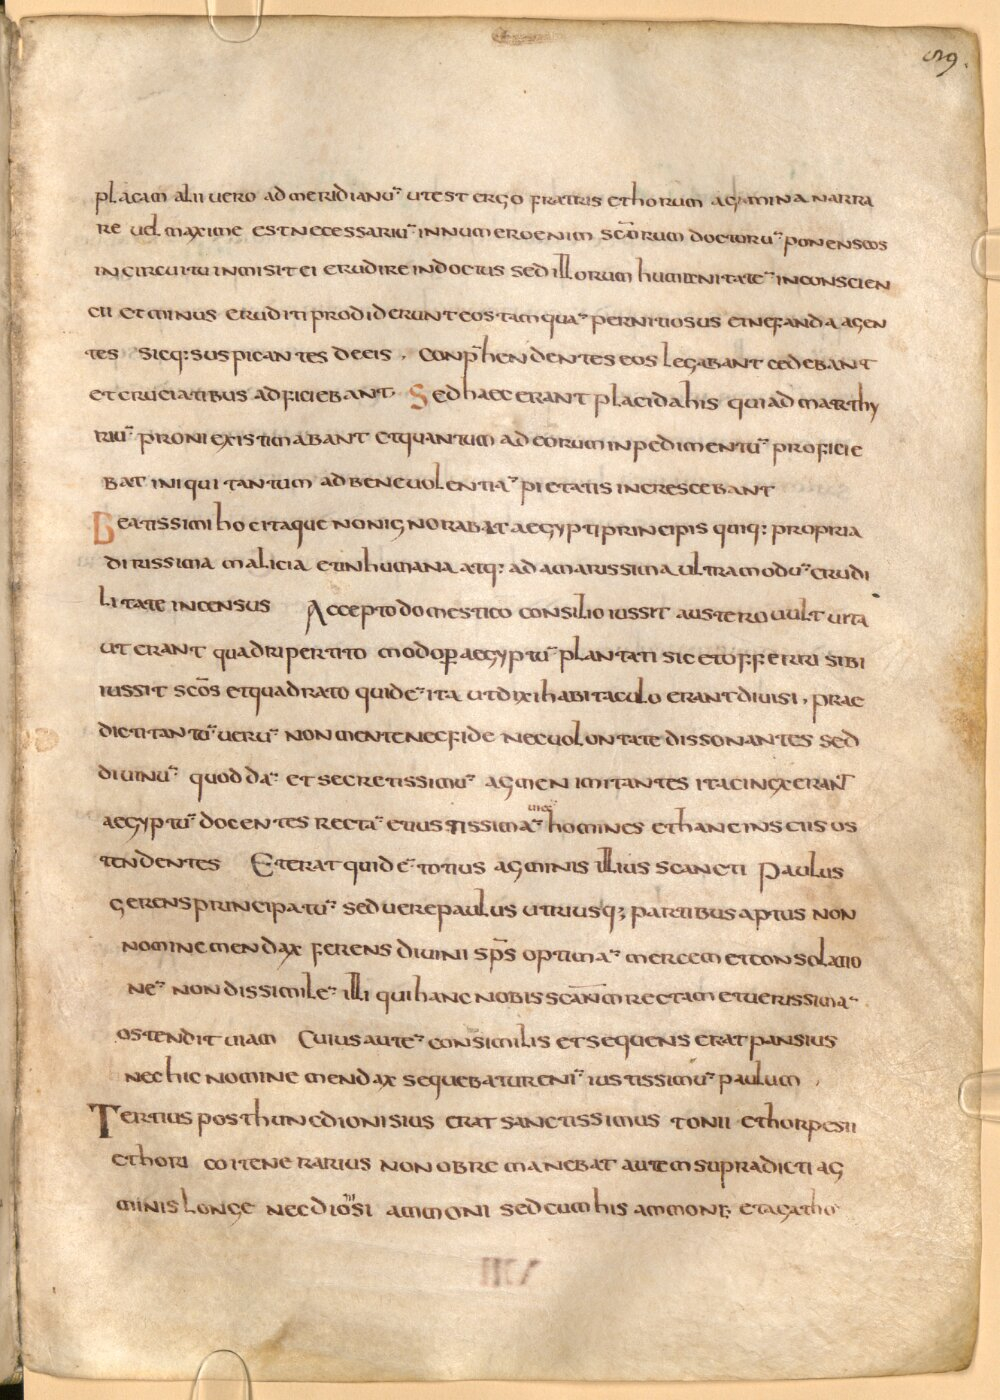 59.
placam alii uero ad meridianū ut est ergo fratris et horum agmina narra
re uel maxime est necessariū innumero enim scōrum doctorū ponens os
in circuitu inmisit ei erudire indoctus sed illorum humanitatē inconscien
cii et minus eruditi prodiderunt eos tam quā pernitiosus et nefanda agen
tes sicq: suspicantes de eis. Conp̄hendentes eos legabant cedebant
et cruciatibus adficiebant. Sed haec erant placida his qui ad marthy
riū proni existimabant et quantum ad eorum inpedimentū proficie
bat iniqui tantum ad beneuolentiā pietatis increscebant
Beatissimi hoc itaque non ignorabat aegypti principis quiq: propria
dirissima malicia et inhumana atq: ad amarissima ultra modū crudi
litate incensus Accepto domestico consilio iussit austero uultu ita
ut erant quadripertito modo per aegyptū plantati sic et offerri sibi
iussit scōs et quadrato quidē ita ut dixi habitaculo erant diuisi, prae
dicti tantū uerū non mente nec fide nec uolontate dissonantes sed
diuinū quoddā et secretissimū agmen imitantes ita cinxerant
aegyptū docentes rectā et iustissimā uice homines et hanc inscus os
tendentes Et erat quidē totius agminis illius scancti Paulus
gerens principatū sed uere paulus utriusq; partibus aptus non
nomine mendax ferens diuini sp̄s optimā mercem et consolatio
nē non dissimilē illi qui hanc nobis scān̄m rectam et uerissimā
ostendit uiam Cuius autē consimilis et sequens erat pansius
nec hic nomine mendax sequebatur enī iustissimū paulum,
Tertius post hunc dionisius erat sanctissimus tonii et horpesii
et hori coitenerarius non ob re manebat autem supradicti ag
minis longe nec dionisi ammoni sed cum his ammoni; et agatho
VIII